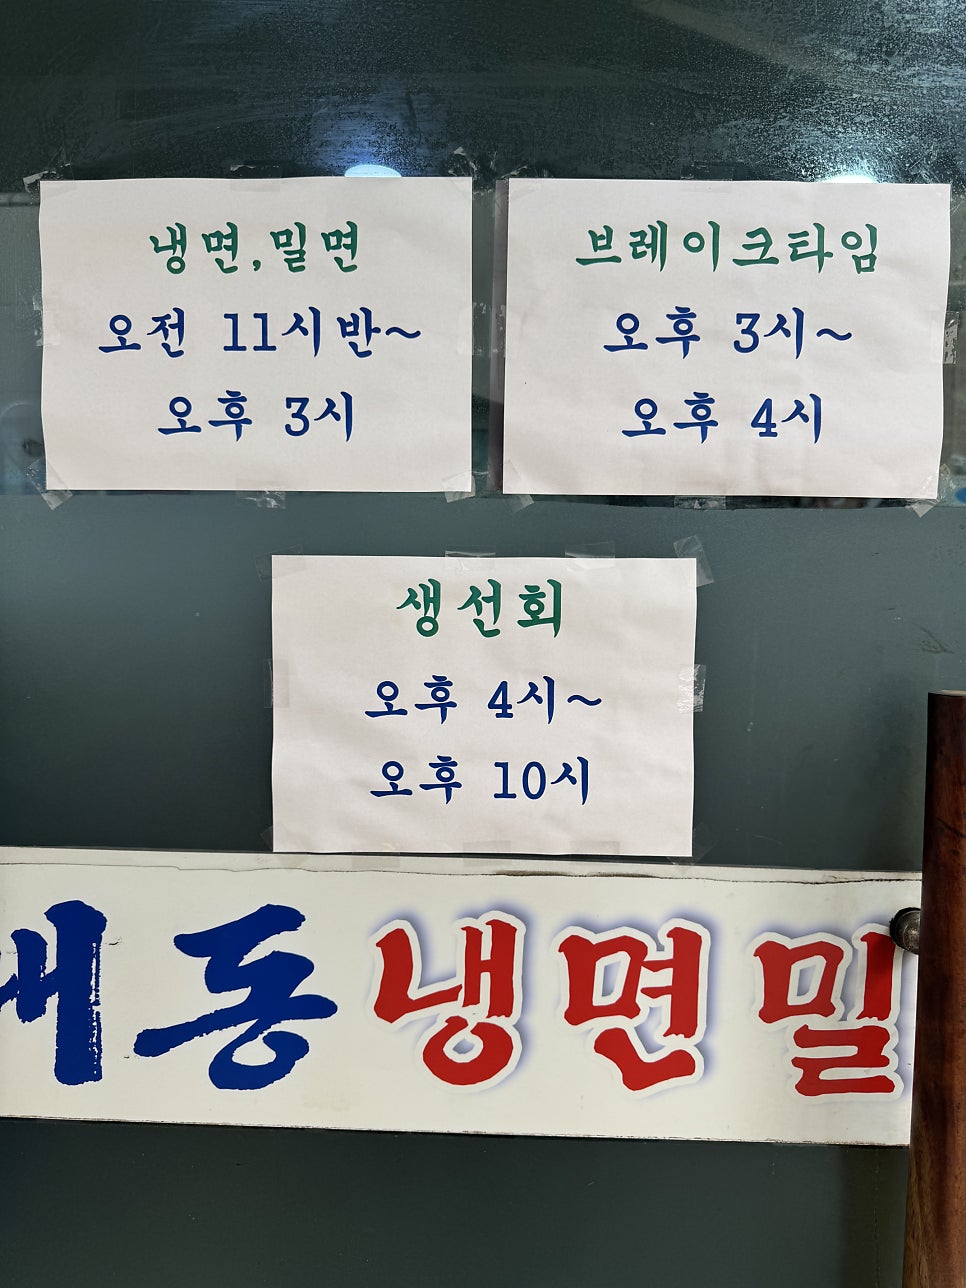 냉면,밀면
오전 11시반~
오후 3시
브레이크타임
오후 3시~
오후 4시
생선회
오후 4시~
오후 10시
동냉면밀